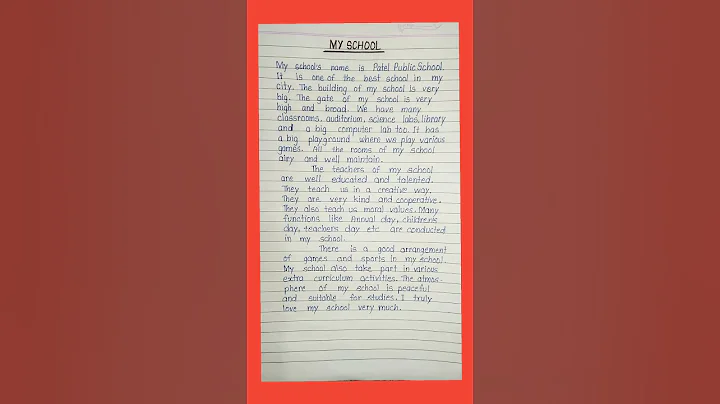 MY SCHOOL
My school's name is Patel Public School.
It is one of the best school in my
city. The building of my school is very
big. The gate of my school is very
high and broad. We have many
classrooms, auditorium, science labs, library
and a big computer lab too. It has
a big playground where we play various
games. All the rooms of my school
airy and well maintain.
The teachers of my school
are well educated and talented.
They teach us in a creative way.
They are very kind and cooperative.
They also teach us moral values. Many
functions like Annual day, children's
day, teacher's day etc are conducted
in my school.
There is a good arrangement
of games and sports in my school.
My school also take part in various
extra curriculum activities. The atmos-
phere of my school is peaceful
and suitable for studies. I truly
love my school very much.